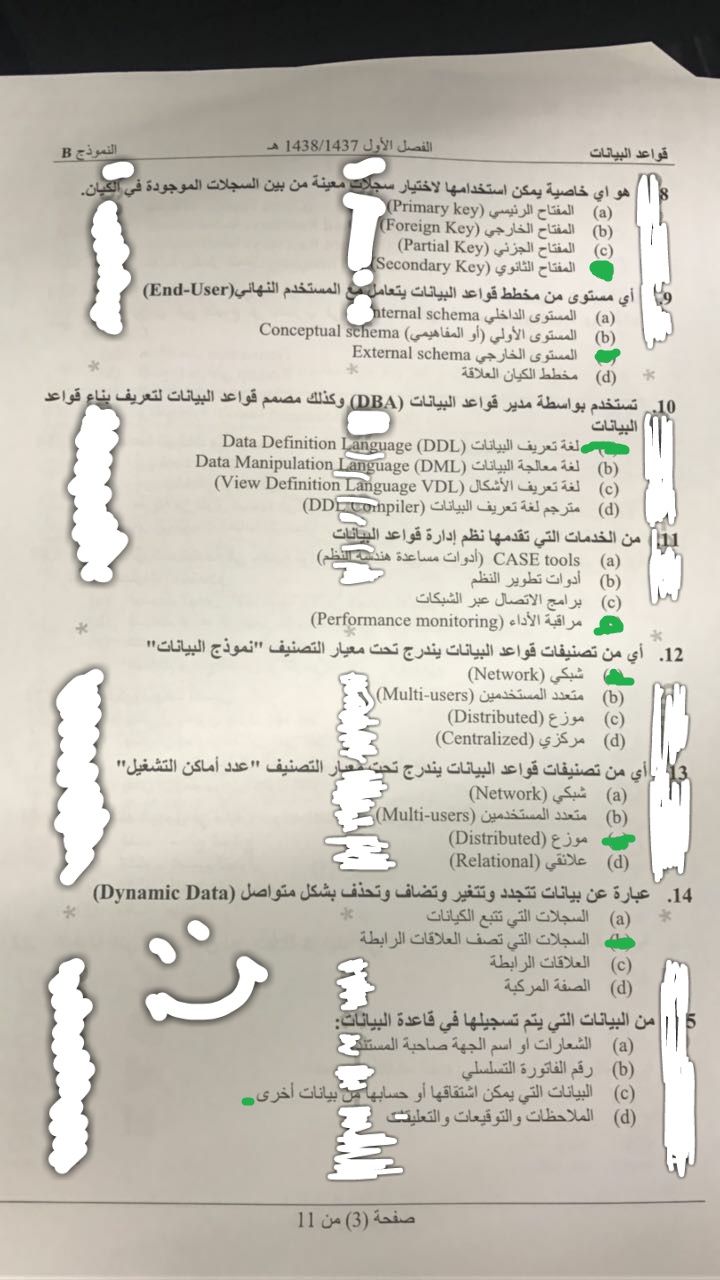 قواعد البيانات
الفصل الأول 1438/1437 هـ
النموذج B
8 هو اي خاصية يمكن استخدامها لاختيار سجلات معينة من بين السجلات الموجودة في الكيان.
(a) المفتاح الرئيسي (Primary key)
(b) المفتاح الخارجي (Foreign Key)
(c) المفتاح الجزئي (Partial Key)
المفتاح الثانوي (Secondary Key)
9. أي مستوى من مخطط قواعد البيانات يتعامل مع المستخدم النهائي(End-User)
(a) المستوى الداخلي nternal schema
(b) المستوى الأولي (أو المفاهيمي) Conceptual schema
المستوى الخارجي External schema
(d) مخطط الكيان العلاقة
10. تستخدم بواسطة مدير قواعد البيانات (DBA) وكذلك مصمم قواعد البيانات لتعريف بناء قواعد
البيانات
لغة تعريف البيانات Data Definition Language (DDL)
(b) لغة معالجة البيانات Data Manipulation Language (DML)
(c) لغة تعريف الأشكال (View Definition Language VDL)
(d) مترجم لغة تعريف البيانات (DDL Compiler)
11. من الخدمات التي تقدمها نظم إدارة قواعد البيانات
(a) CASE tools (أدوات مساعدة هندسة النظم)
(b) أدوات تطوير النظم
(c) برامج الاتصال عبر الشبكات
مراقبة الأداء (Performance monitoring)
12. أي من تصنيفات قواعد البيانات يندرج تحت معيار التصنيف "نموذج البيانات"
شبكي (Network)
(b) متعدد المستخدمين (Multi-users)
(c) موزع (Distributed)
(d) مركزي (Centralized)
13 أي من تصنيفات قواعد البيانات يندرج تحت معيار التصنيف "عدد أماكن التشغيل"
(a) شبكي (Network)
(b) متعدد المستخدمين (Multi-users)
موزع (Distributed)
(d) علائقي (Relational)
14. عبارة عن بيانات تتجدد وتتغير وتضاف وتحذف بشكل متواصل (Dynamic Data)
(a) السجلات التي تتبع الكيانات
(b) السجلات التي تصف العلاقات الرابطة
(c) العلاقات الرابطة
(d) الصفة المركبة
5 من البيانات التي يتم تسجيلها في قاعدة البيانات:
(a) الشعارات او اسم الجهة صاحبة المستند
(b) رقم الفاتورة التسلسلي
(c) البيانات التي يمكن اشتقاقها أو حسابها من بيانات أخرى
(d) الملاحظات والتوقيعات والتعليقات
صفحة (3) من 11